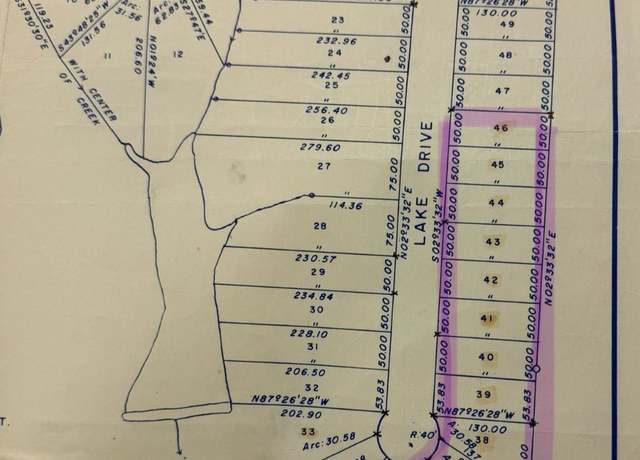 119.23
S31°30'30"E
S43°48'25"W
131.56
Arc:
31.56
206.60
N01°24'W
Arc:
62.83
59.44
S27°47'E
11
12
WITH CENTER
OF CREEK
23
232.96
24
"
242.45
25
"
256.40
26
"
279.60
27
"
114.36
28
"
230.57
29
"
234.84
30
"
228.10
31
"
206.50
32
N87°26'28"W
202.90
33
Arc: 30.58
50.00
50.00
50.00
50.00
75.00
N02°33'32"E
75.00
50.00
50.00
50.00
50.00
53.83
LAKE DRIVE
S02°33'32"W
R:40'
N87°26'28"W
130.00
49
"
48
"
47
"
46
"
45
"
44
"
43
"
42
"
41
"
40
"
39
N87°26'28"W
130.00
38
A:
30.58
50.00
50.00
50.00
50.00
50.00
50.00
50.00
50.00
50.00
50.00
53.83
50.00
50.00
50.00
50.00
50.00
50.00
50.00
50.00
50.00
50.00
53.83
N02°33'32"E
T.